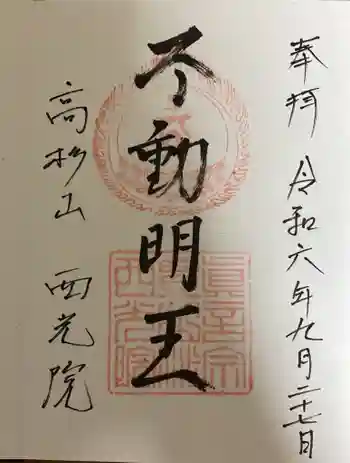 奉拝 令和六年九月二十七日
不動明王
高杉山 西光院